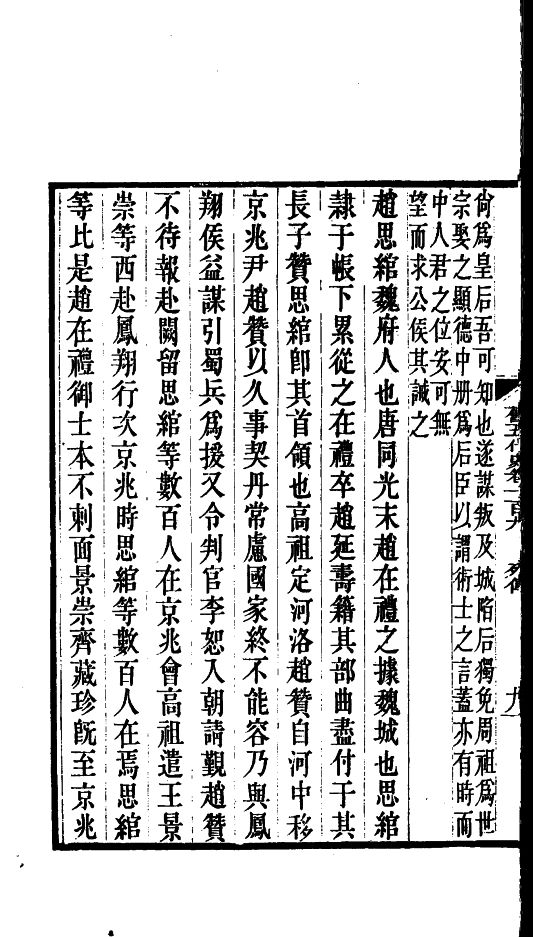 尙爲皇后吾可知也遂謀叛及城陷后獨免周祖爲世
宗娶之顯德中册爲后臣以謂術士之言蓋亦有時而
中人君之位安可無
望而求公侯其誠之
趙思綰魏府人也唐同光末趙在禮之據魏城也思綰
隷于帳下累從之在禮卒趙延壽籍其部曲盡付于其
長子贊思綰卽其首領也高祖定河洛趙贊自河中移
京兆尹趙贊以久事契丹常慮國家終不能容乃與鳳
翔侯益謀引蜀兵爲援又令判官李恕入朝請覲趙贊
不待報赴闕留思綰等數百人在京兆會高祖遣王景
崇等西赴鳳翔行次京兆時思綰等數百人在焉思綰
等比是趙在禮御士本不刺面景崇齊藏珍旣至京兆